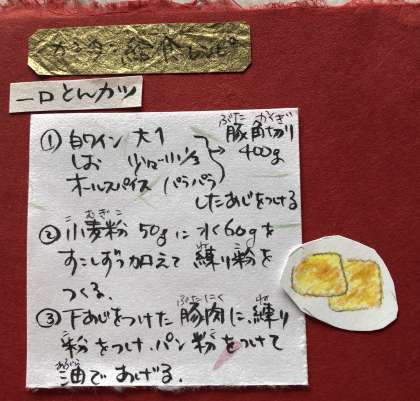 カンタン給食レシピ
一口とんカツ
①白ワイン 大1
しお 少々
オールスパイス パラパラ
豚角切り
400g
したあじをつける
②小麦粉 50gに水60gを
すこしずつ加えて練り粉を
つくる.
③下あじをつけた豚肉に、練り
粉をつけ、パン粉をつけて
油であげる.